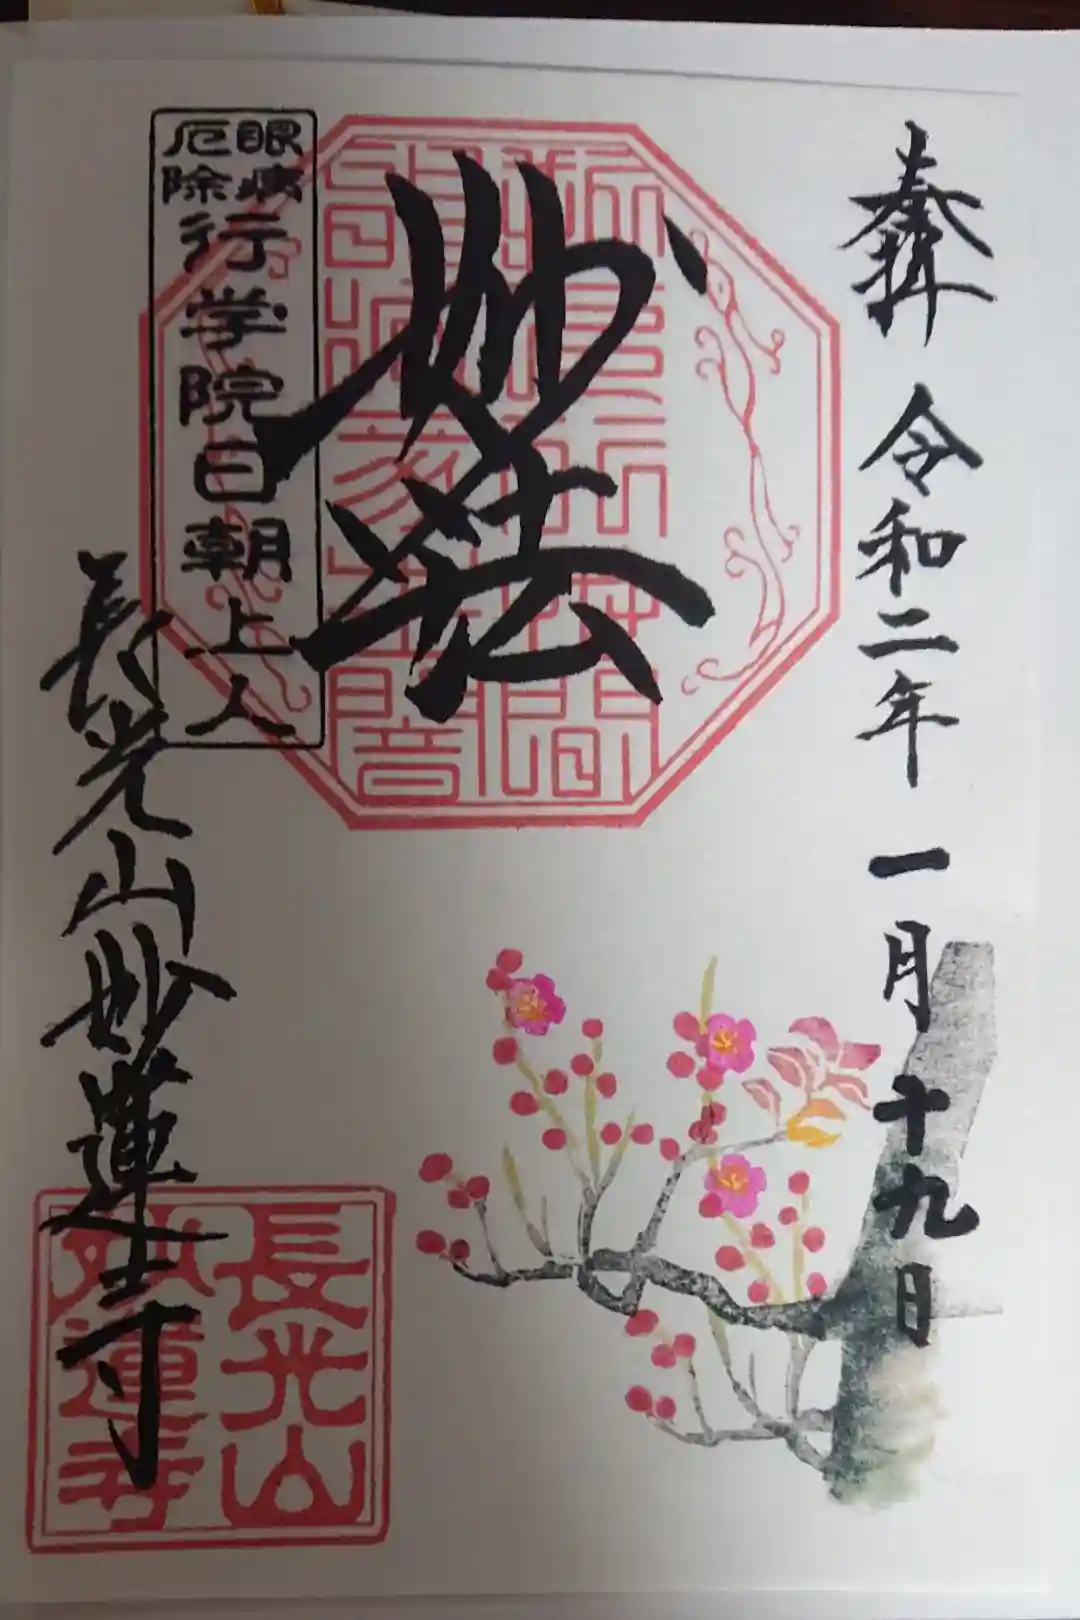 奉拝 令和二年 一月 十九日
妙法
眼病
厄除
行学院日朝上人
長光山妙蓮寺
長光山
妙蓮寺